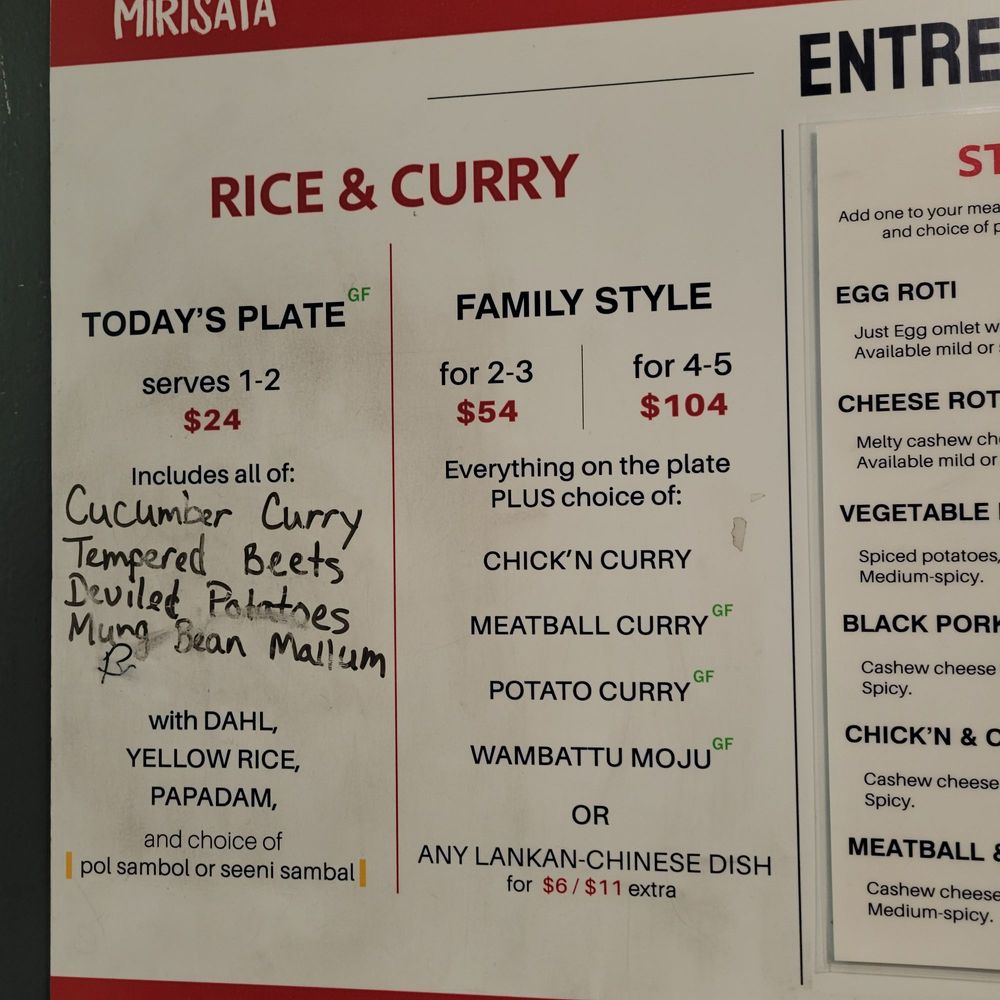 MIRISATA
ENTRE
RICE & CURRY
TODAY'S PLATE GF
serves 1-2
$24
Includes all of:
Cucumber Curry
Tempered Beets
Deviled Potatoes
Mung Bean Mallum
with DAHL,
YELLOW RICE,
PAPADAM,
and choice of
pol sambol or seeni sambal
FAMILY STYLE
for 2-3
$54
for 4-5
$104
Everything on the plate
PLUS choice of:
CHICK'N CURRY
MEATBALL CURRY GF
POTATO CURRY GF
WAMBATTU MOJU GF
OR
ANY LANKAN-CHINESE DISH
for $6 / $11 extra
ST
Add one to your mea
and choice of p
EGG ROTI
Just Egg omlet w
Available mild or s
CHEESE ROT
Melty cashew che
Available mild or
VEGETABLE
Spiced potatoes,
Medium-spicy.
BLACK PORK
Cashew cheese
Spicy.
CHICK'N & C
Cashew cheese
Spicy.
MEATBALL &
Cashew cheese
Medium-spicy.